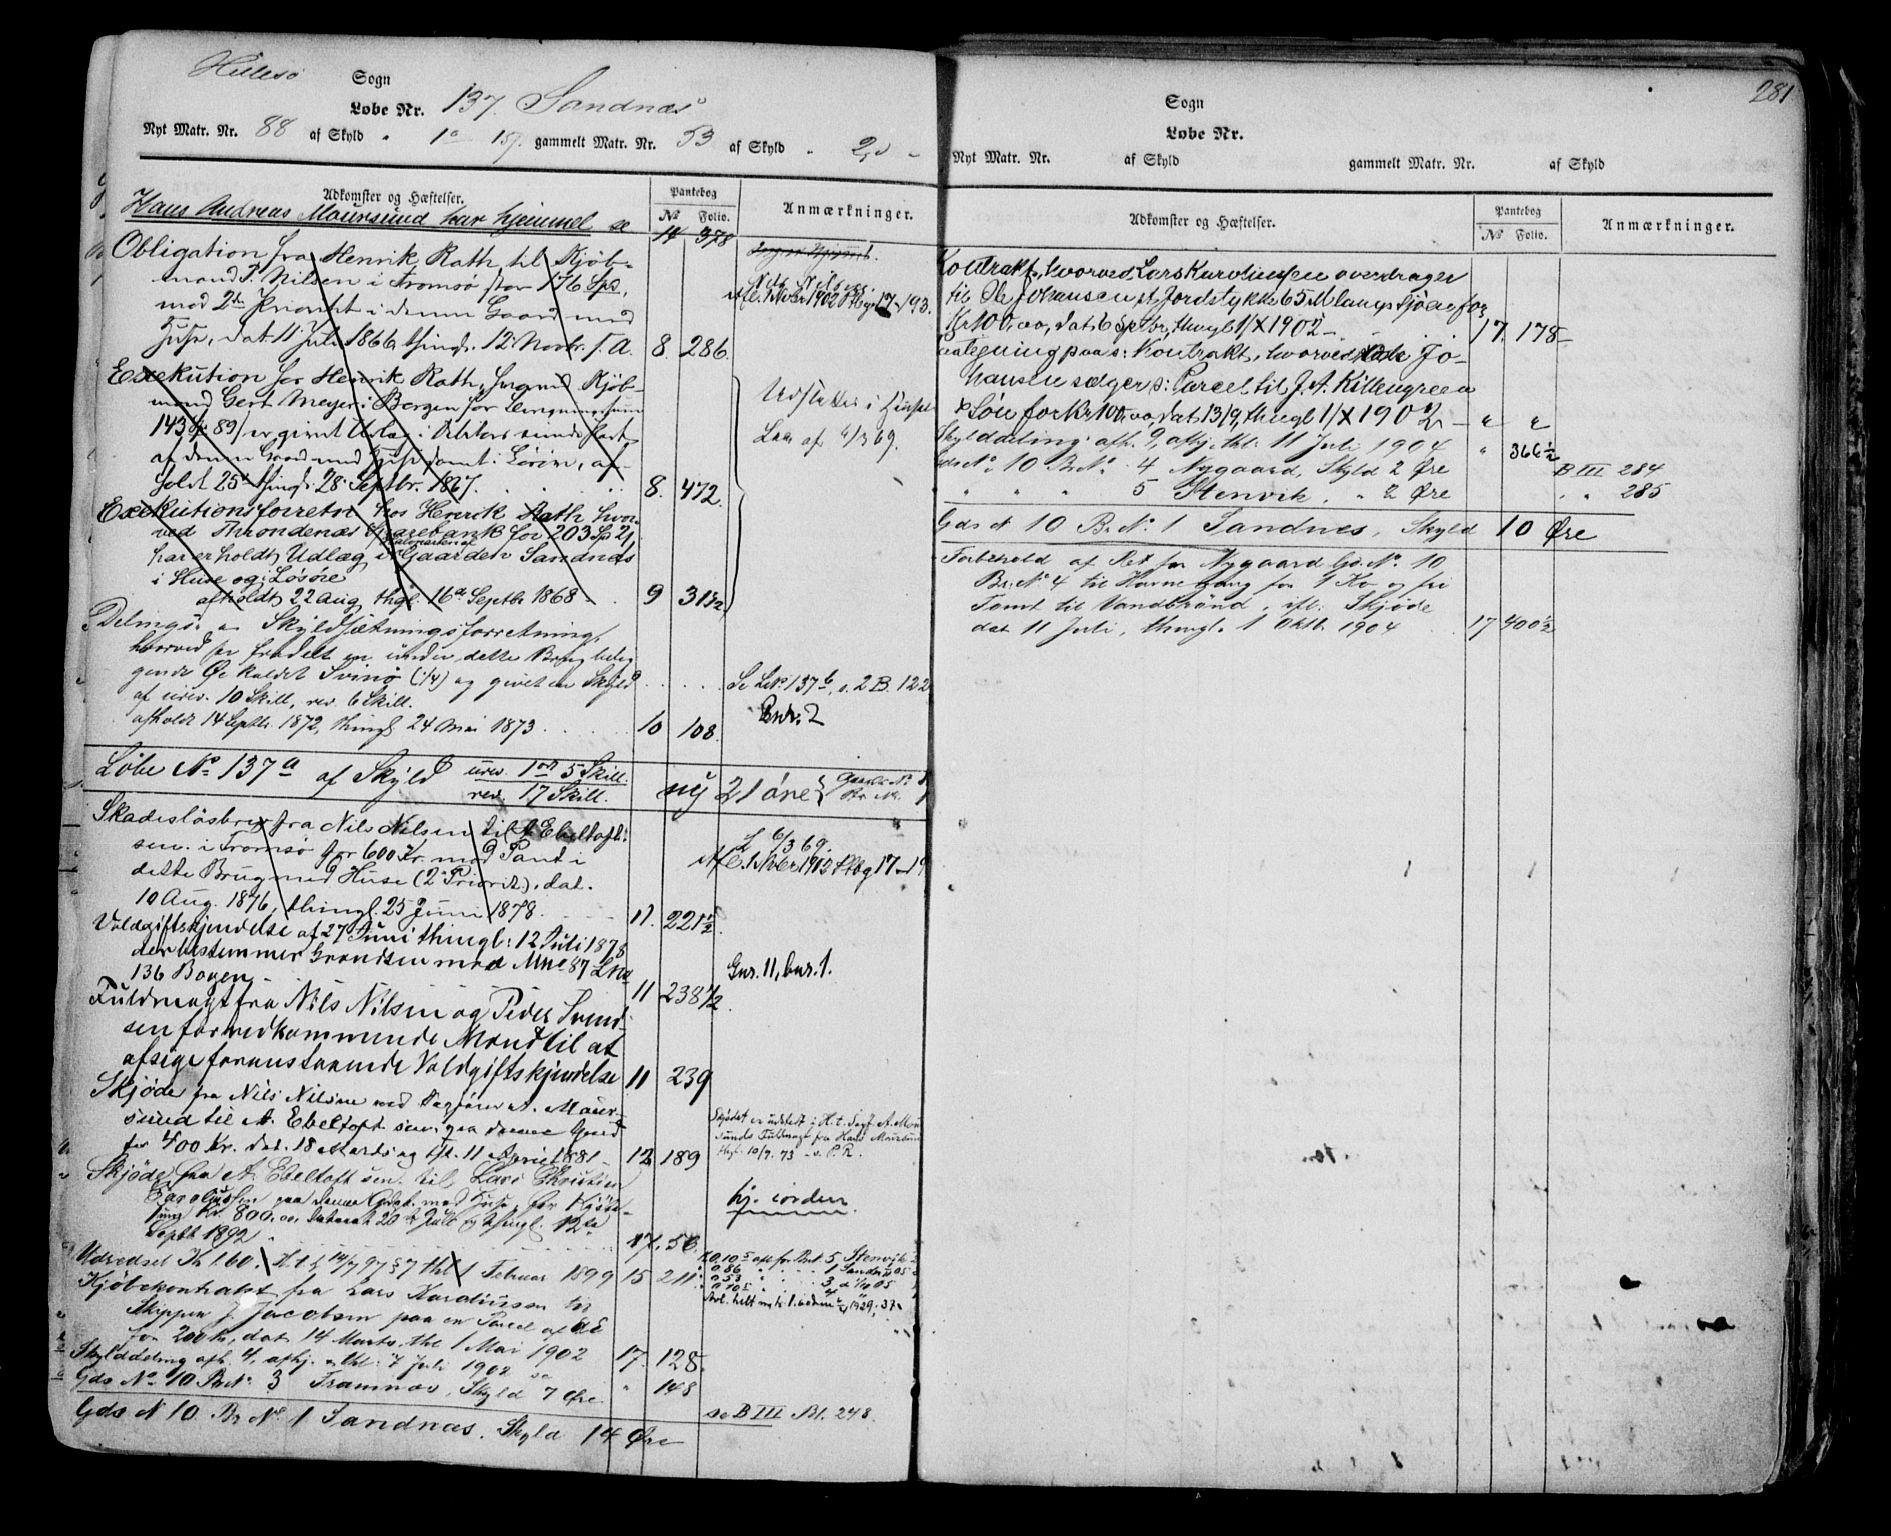 Sogn
Løbe Nr. 137. Sandnæs
Nyt Matr. Nr. 88 af Skyld gammelt Matr. Nr. 53 af Skyld
Adkomster og Hæftelser.
Pantebog
№ Folio.
Anmærkninger.
Hans Andreas Maursund har hjemmel se 14 378
Obligation fra Henrik Rath til Kjøb-
mand Nilsen i Tromsø stor 176 Sps,
med 2den Prioritet i denne Gaard med
Huse, dat 11 Juli 1866 thingl. 12 Novbr. s. A. 8. 286.
afl. 1902 Pbog 17 - 193.
Exekution for Henrik Rath, Kjøb-
mand Gert Meyer i Bergen for
143 89/ er givet Udlæg i Debitors
af denne Gaard med Huse samt i Løsøre, af-
holdt 25de thingl. 28. Septbr. 1867. 8. 472.
Udslettes i Henhold
Lov af 6/3 69.
Exekutionsforretn. hos Henrik Rath hvor-
ved Throndenæs Sparebank for 203 Sp 21
har erholdt Udlæg i Gaarden Sandnæs
i Huse og i Løsøre
afholdt 22 Aug thgl. 16de Septbr 1868 9 31 1/2
Delings- & Skyldsætningsforretning,
hvorved er fradelt en under dette Brug belig-
gende Ø kaldet Svinø (1/4) og givet en Skyld
af urev. 10 Skill, rev. 6 Skill.
afholdt 14 Septbr. 1872, thingl. 24 Mai 1873 10 108.
Se LNo. 137b, s. 2 B. 122
Bnr. 2
Løbe No 137a af Skyld urev. 1 ort 5 Skill.
rev. 17 Skill. ny 21 øre
Skadesløsbrev fra Nils Nilsen til A Ebeltoft
sen. i Tromsø for 600 Kr. med Pant i
dette Brug med Huse (2 Priorit), dat.
10 Aug. 1876, thingl. 25 Juni 1878. 11. 221 1/2
L 6/3 69.
Pbog 17
Voldgiftskjendelse af 27 Juni thingl: 12 Juli 1878
der bestemmer Grændsen mod Mnr 87 LNo
136 Bogen 11 238 1/2
Gnr. 11, bnr. 1.
Fuldmagt fra Nils Nilsen og Peder Svend-
sen for vedkommende Mænd til at
afsige foranstaaende Voldgiftskjendelse 11 239
Skjøde fra Nils Nilsen ved Sagfører A. Maur-
sund til A. Ebeltoft sen. paa denne Gaard
for 400 Kr. dat. 18 Marts og thl. 11 April 1881 12 189
Skjødet er udstedt i H. t. Sagf. A. Maur
sunds Fuldmagt fra Hans Maursund
thgl. 10/7. 73
Skjøde fra A Ebeltoft sen. til Lars Christian
Karoliussen paa denne Gaard med Huse for Kjøbe-
sum Kr. 800.00 Dateret 20de Juli og thingl. 12te
Septb 1892 17. 56.
hj. iorden
Udredsel Kr 1.60. H.t.L 14/7 97 § 7 thl 1 Februar 1899 15 211
Kjøbekontrakt fra Lars Karoliussen til
Skipper J. Jacobsen paa en Parcel af do
for 200 Kr, dat. 14 Marts, thl 1 Mai 1902 17. 128.
Skylddeling afh. 4, afhj. & thl. 7 Juli 1902 " 148
Gds No 10 Br No 3 Framnæs, Skyld 7 Øre
se B III Bl. 248.
Gds N 10. Br No 1 Sandnæs. Skyld 14 Øre
281
Sogn
Løbe Nr.
Nyt Matr. Nr. af Skyld gammelt Matr. Nr. af Skyld
Adkomster og Hæftelser.
Pantebog
№ Folio.
Anmærkninger.
Kontrakt, hvorved Lars Karoliussen overdrager
til Ole Johansen et Jordstykke 65 M langs Sjøen for
Kr 100,00, dat 6 Septbr, thingl 1/X 1902 17. 178
paa s: Kontrakt, hvorved Ole Jo-
hansen sælger s: Parcel til J. A. Killengreen
& Søn for Kr 100,00, dat 13/9, thingl 1/X 1902 " "
Skylddeling afh. 9, afhj. thl. 11 Juli 1904 " 366 1/2
Gds No 10 Br No 4 Nygaard, Skyld 2 Øre B III 284
" " " 5 Stenvik, " 2 Øre " " 285
Gds N 10 Br No 1 Sandnes, Skyld 10 Øre
Forbehold af Ret for Nygaard Gds No 10
Br. No 4 til Havnegang for 1 Ko og fri
Tomt til Vandbrønd, ifl. Skjøde
dat 11 Juli, thingl. 1 Oktb. 1904 17 400 1/2